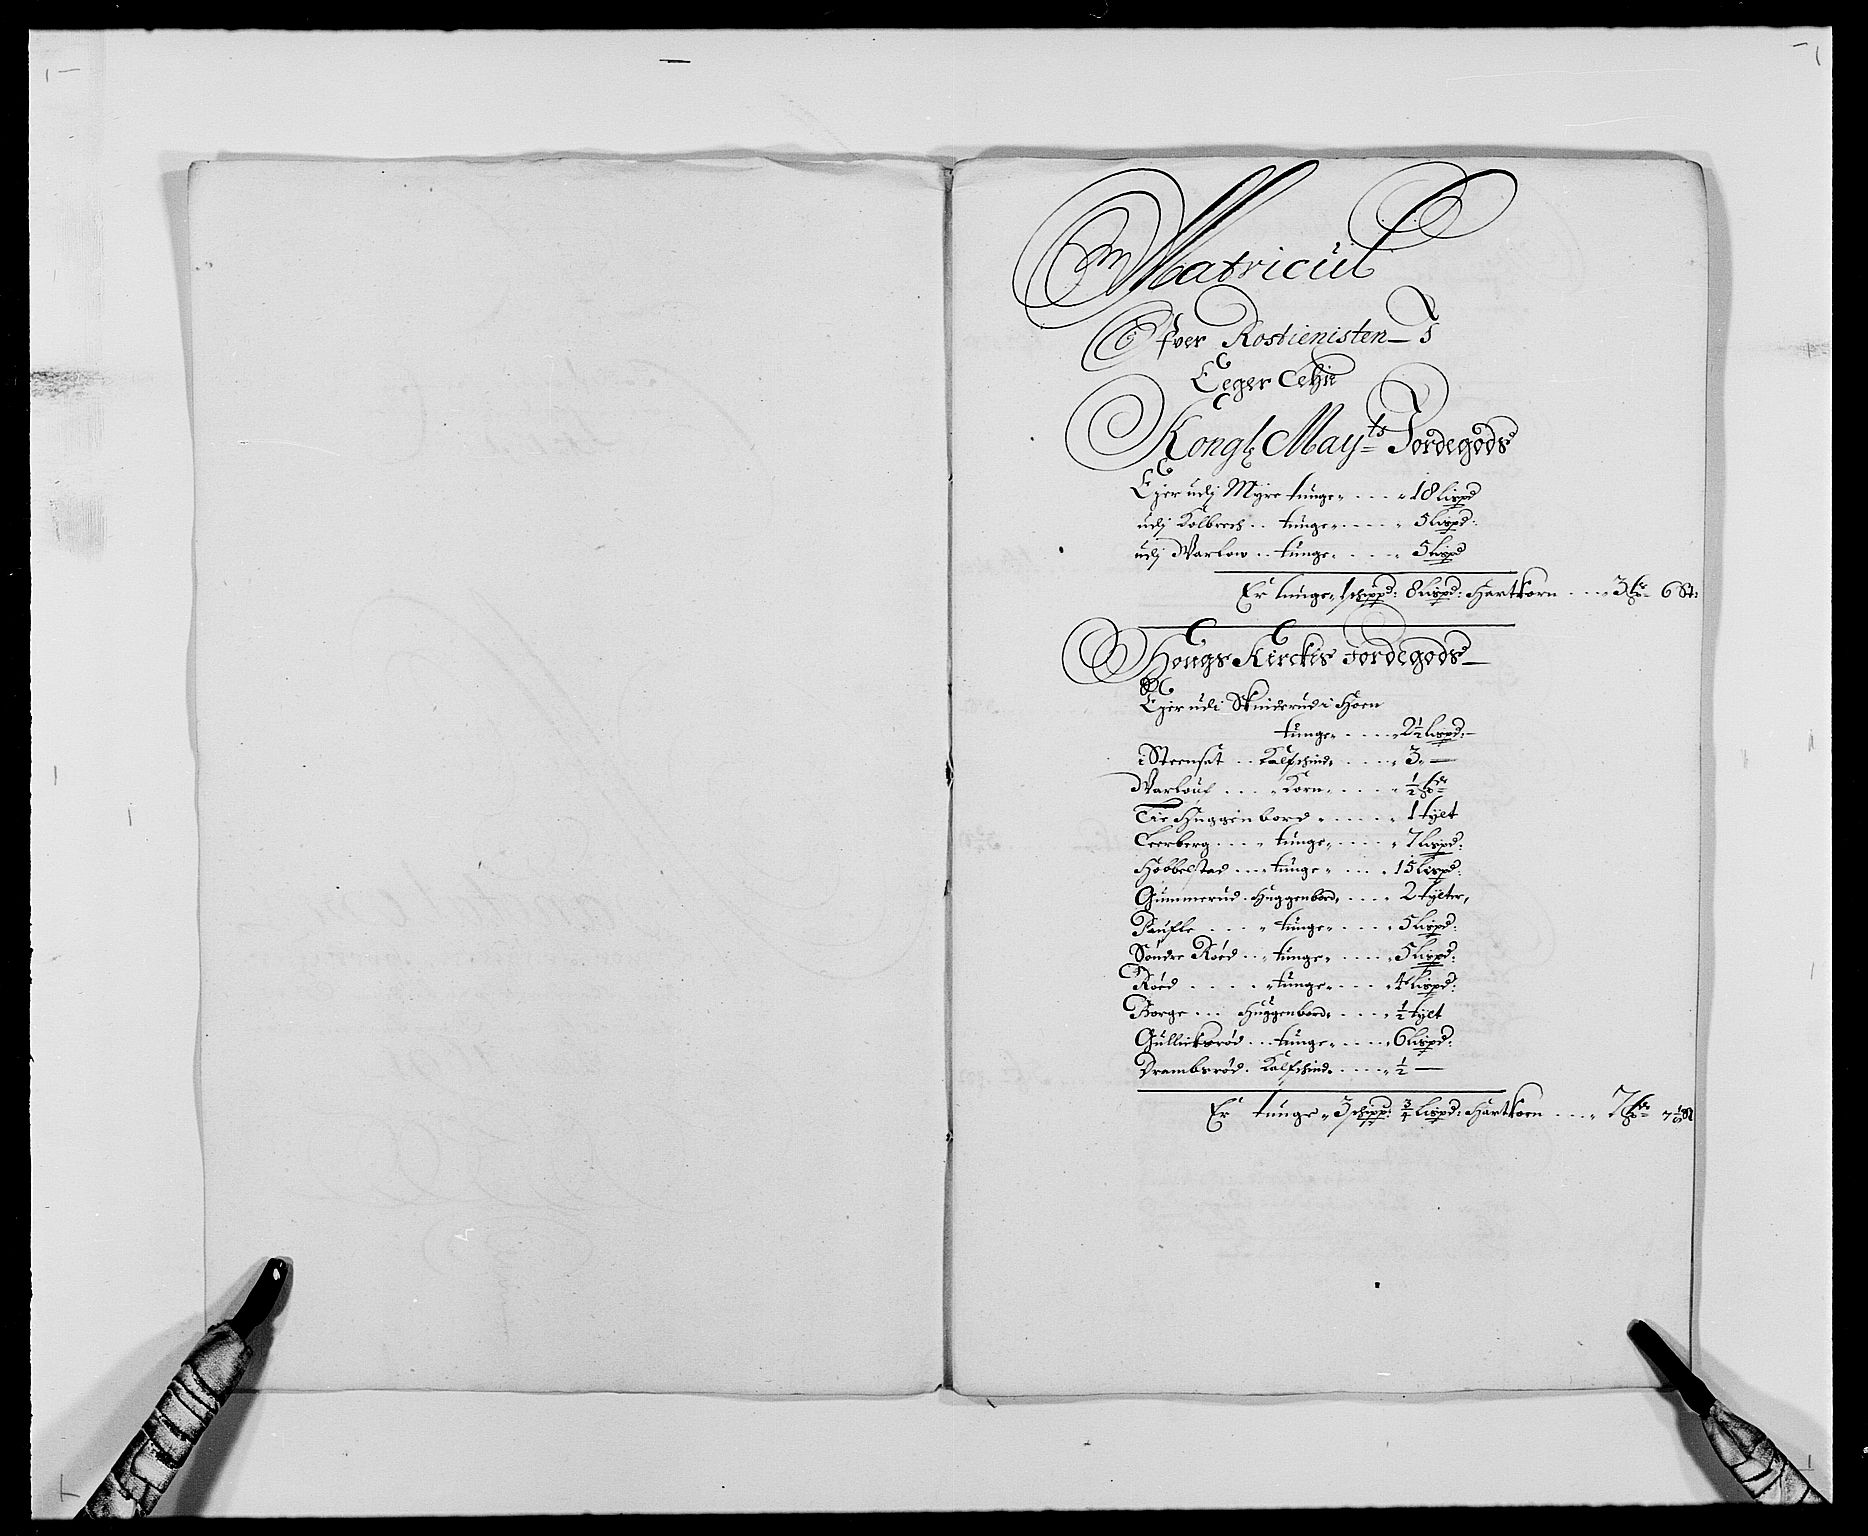 Matricul
Ofver Rostienisten J
Eeger Lehn
Kongl Mayts Jordegods
Ejer udj Myre tunge 18 lispd
udj Kolbrech tunge 5 lispd:
udj Warlow tunge 5 lispd
Er tunge 1 schippd: 8 lispd: Hartkorn 3 tdr 6 St:
Hougs Kirckis Jordegods
Ejer udi Skinderud i Hoen
tunge 2½ lispd:
i Steenset Kalfschind 3
Warlouf Korn ½ tdr
Tie Huggenbord 1 tylt
Leerberg tunge 7 lispd:
Hobbelstad tunge 15 lispd:
Gummerud Huggenbord 2 tylter,
Paufle tunge 5 lispd:
Søndre Røed tunge 5 lispd:
Røed tunge 4 lispd:
Borge Huggenbord ½ tylt
Gullicksrød tunge 6 lispd:
Drambsrød Kalfschind ½
Er tunge 3 schipp: ¾ lispd: Hartkorn 7 tdr